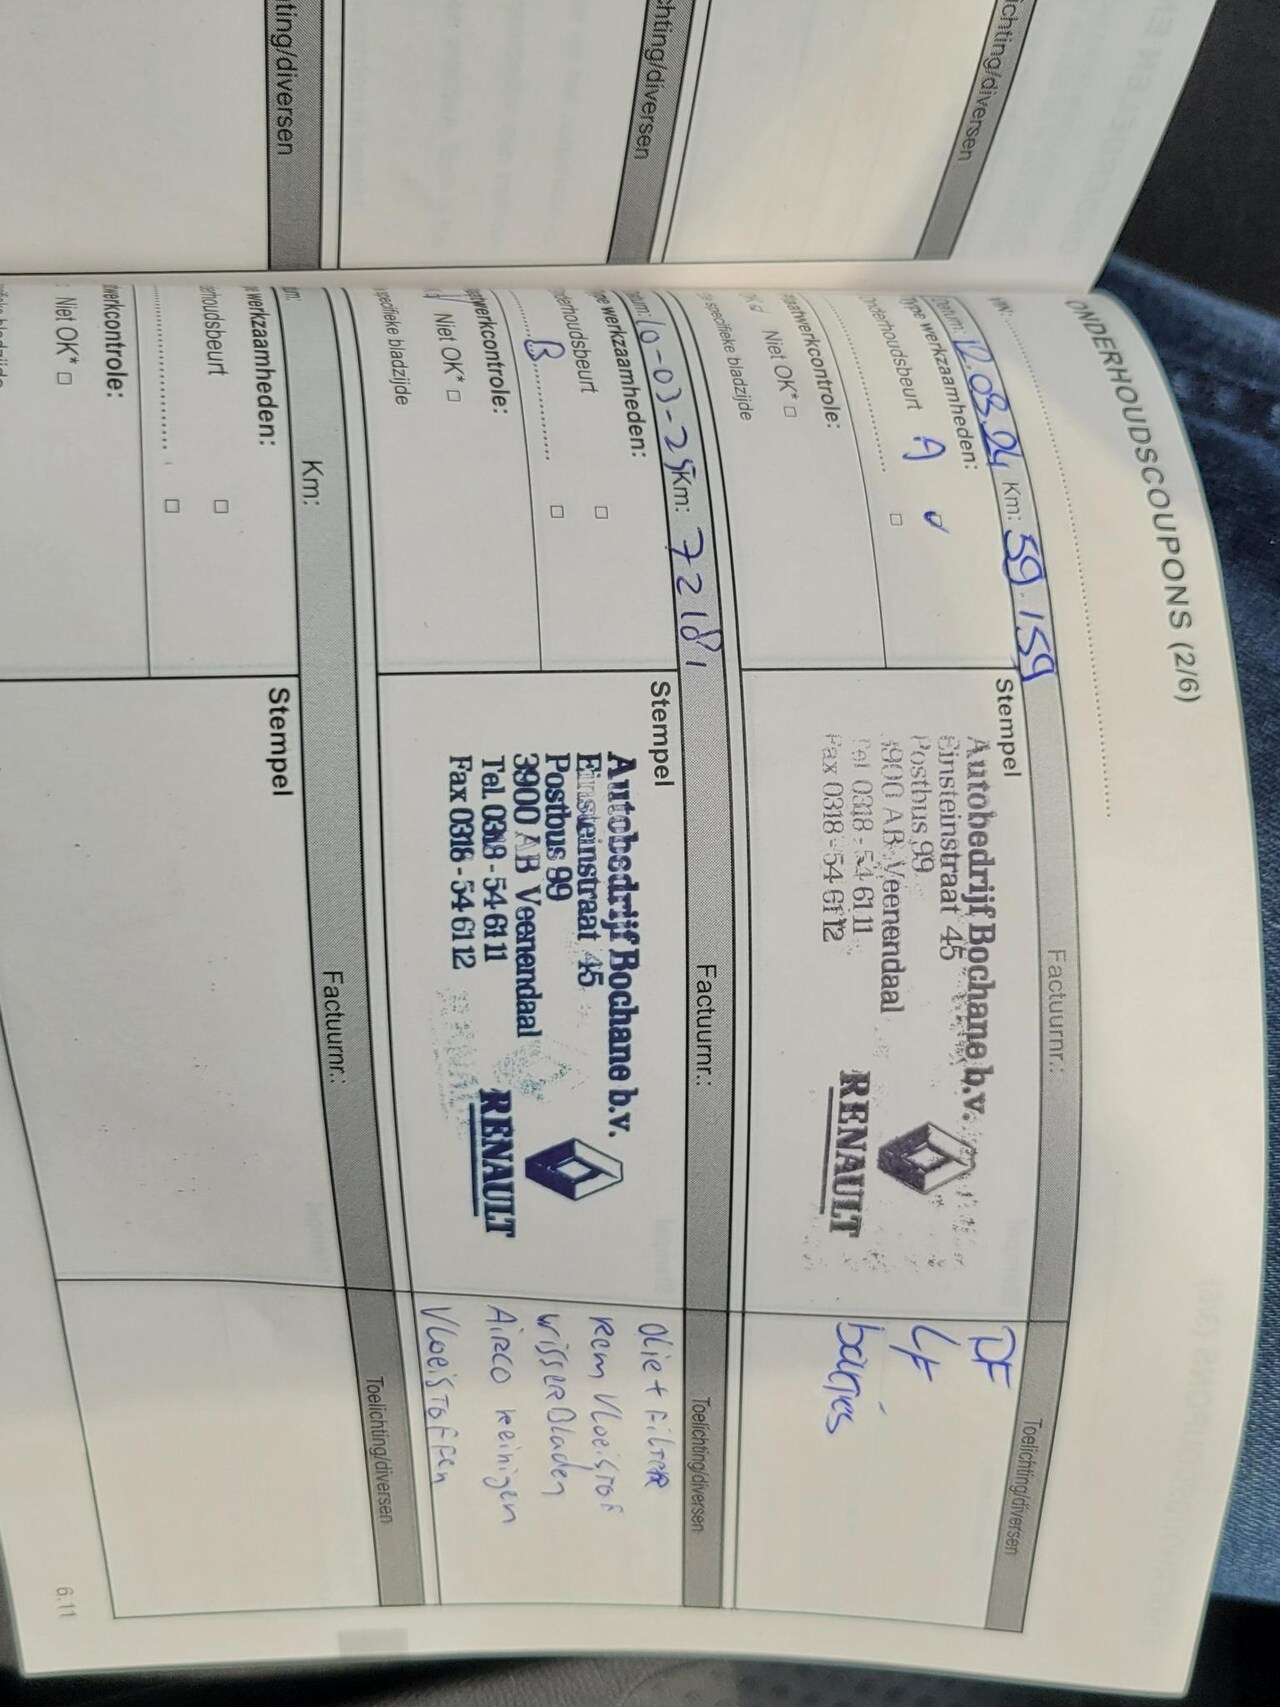 ichting/diversen
chting/diversen
ting/diversen
ONDERHOUDSCOUPONS (2/6)
VIN:
Datum: 12.03.24 Km: 59.159 Factuurnr.: Toelichting/diversen
Type werkzaamheden:
Onderhoudsbeurt A
aatwerkcontrole:
Niet OK*
specifieke bladzijde
Stempel
Autobedrijf Bochane b.v.
Einsteinstraat 45
Postbus 99
3900 AB Veenendaal
Tel 0318-54 61 11
Fax 0318-54 61 12
RENAULT
DF
LF
batt
tum: 10-03-25 Km: 72181 Factuurnr.: Toelichting/diversen
e werkzaamheden:
nderhoudsbeurt
B
atwerkcontrole:
Niet OK*
specifieke bladzijde
Stempel
Autobedrijf Bochane b.v.
Einsteinstraat 45
Postbus 99
3900 AB Veenendaal
Tel. 0318-54 61 11
Fax 0318-54 61 12
RENAULT
olie + Filter
Rem Vloeistof
wisserBladen
Airco Reinigen
Vloeistoffen
m: Km: Factuurnr.: Toelichting/diversen
werkzaamheden:
erhoudsbeurt
werkcontrole:
Niet OK*
Stempel
6.11